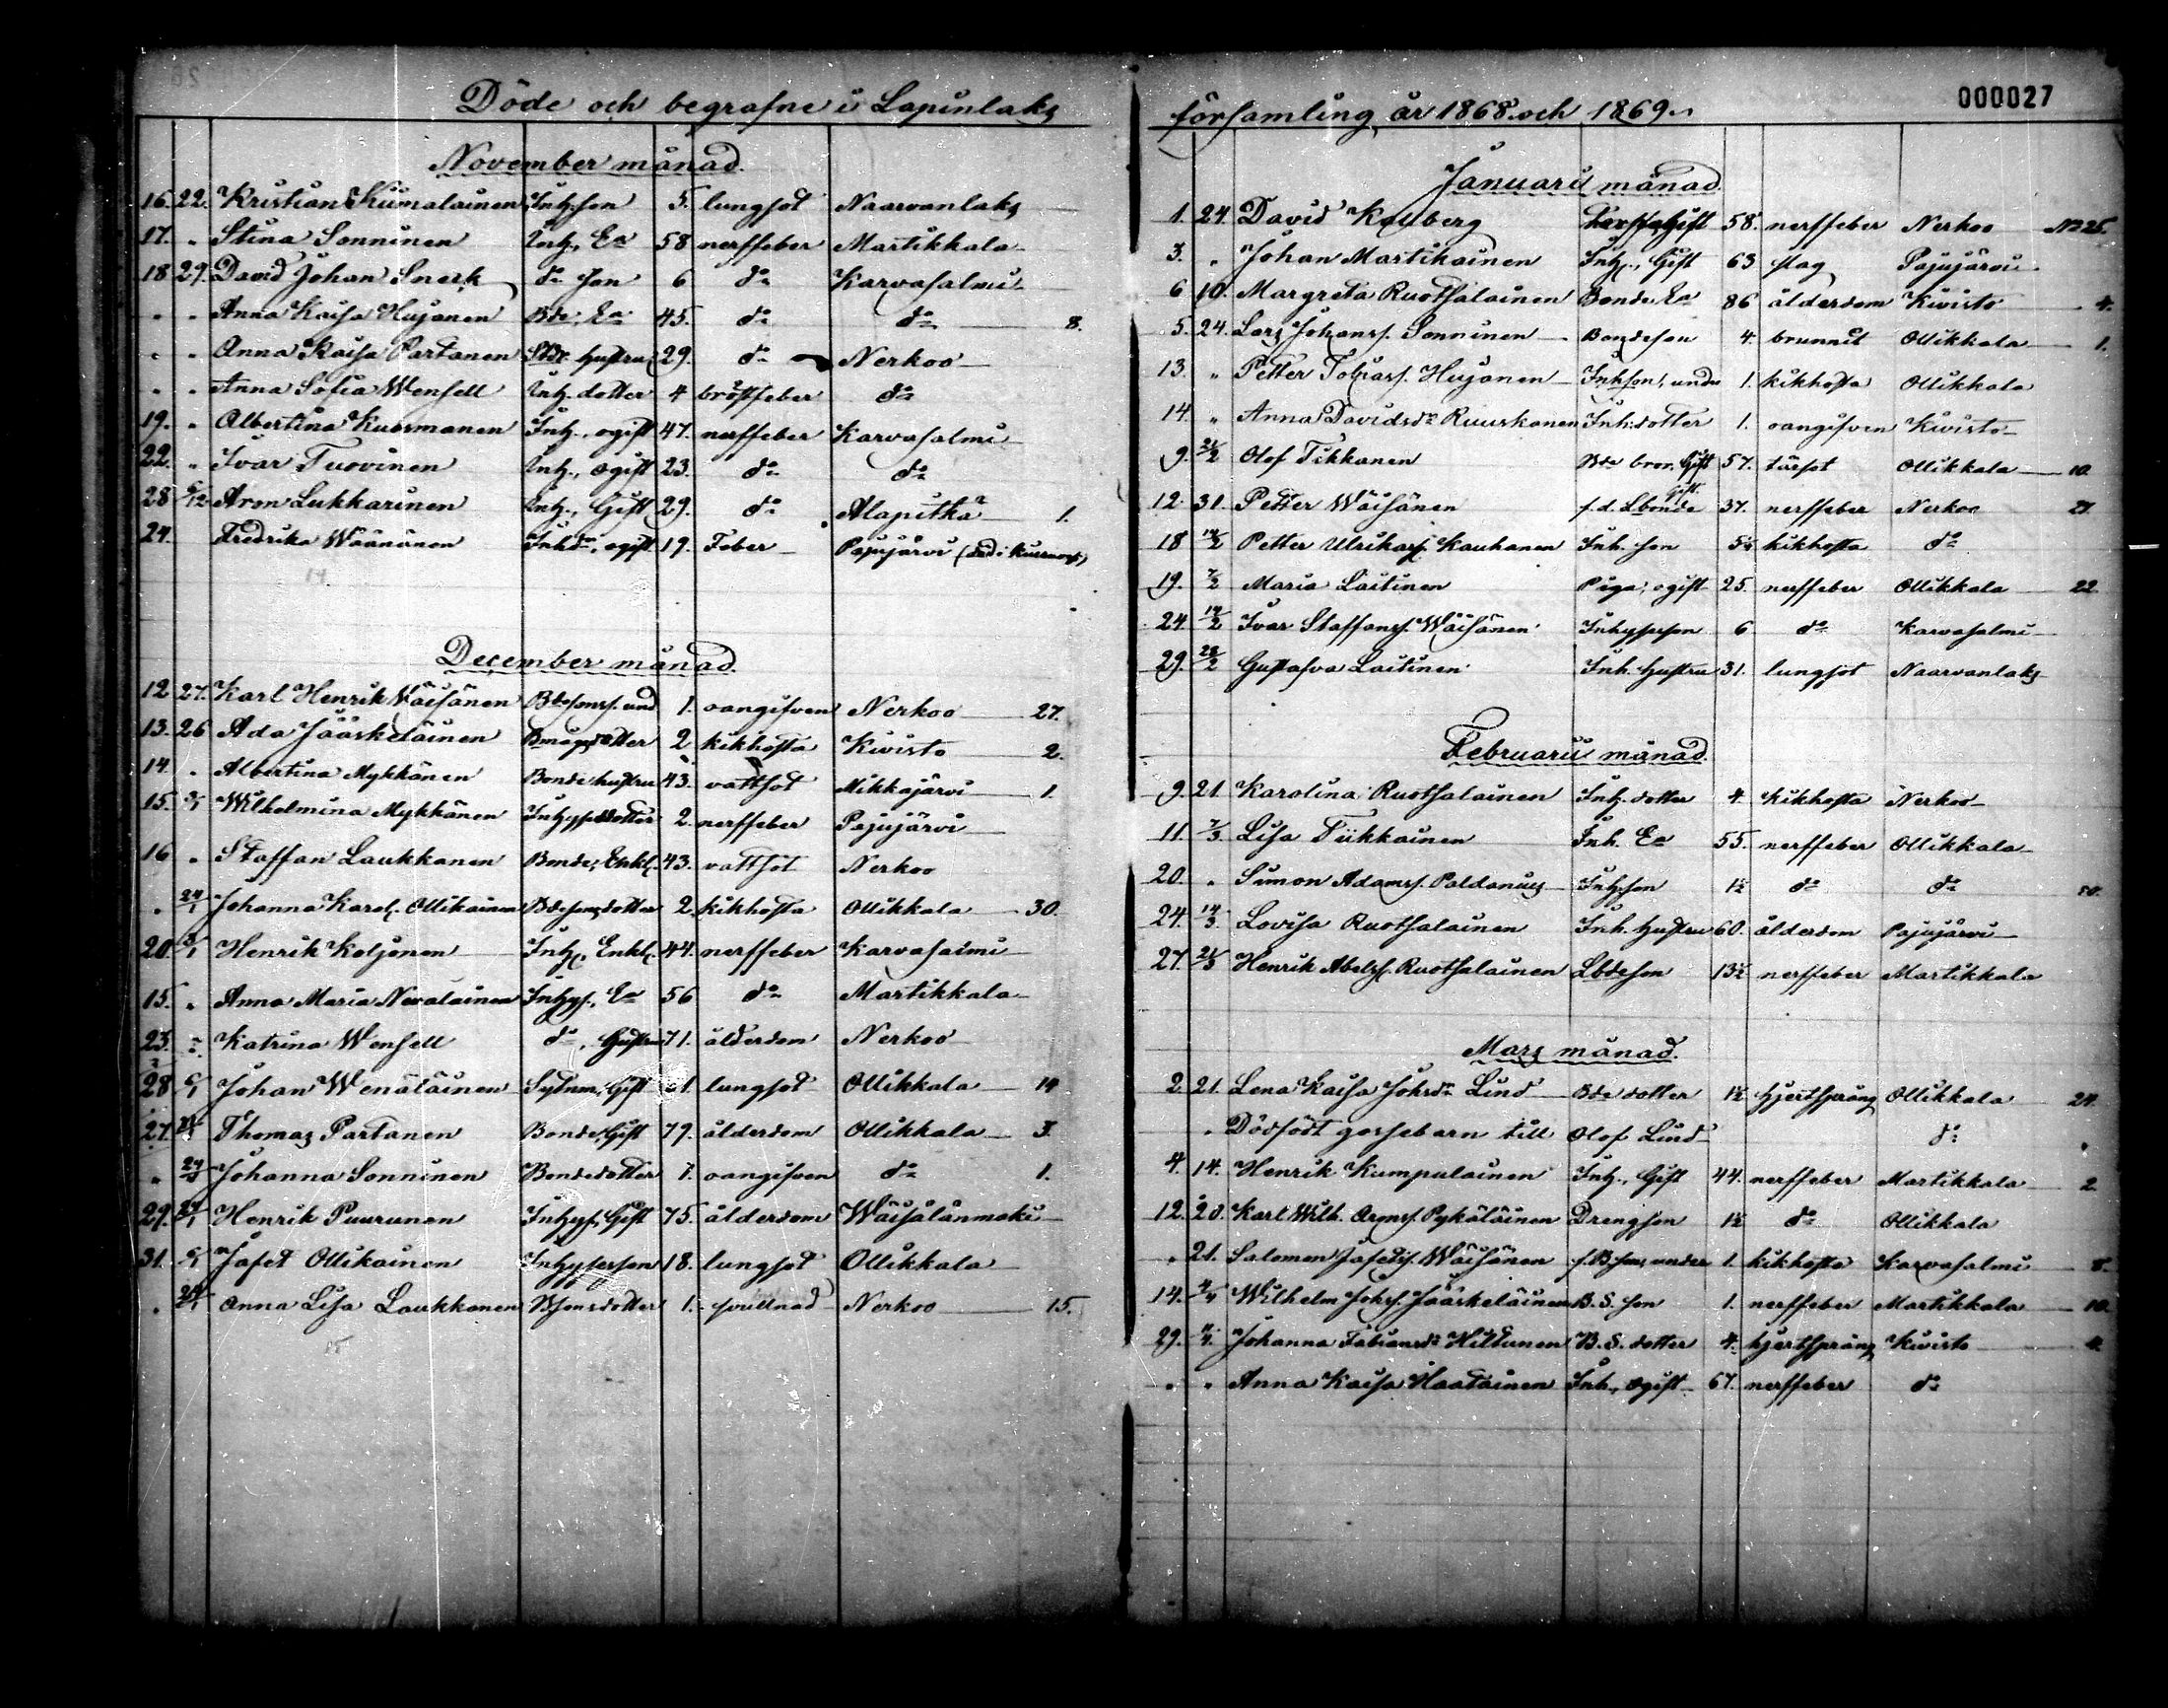 Döde och begrafne i Lapinlaks
November månad.
16. 22. Kristian Kumalainen Inh. son 5. lungsot Naarvanlaks
17. " Stina Sonninen Inh. Ea 58 nerffeber Martikkala
18 29. David Johan Snerk do son 6 do Karvasalmi
" " Anna Kaisa Hujanen Bde. Ea 45. do do 8.
" " Anna Kaisa Partanen hustru 29. do Nerkoo
" " Anna Sofia Wensell Inh. dotter 4 bröstfeber do
19. " Albertina Kuosmanen Inh., ogift 47. nerffeber Karvasalmi
22. " Ivar Tuovinen Inh., ogift 23. do do
28 6/12 Aron Lukkarinen Inh., Gift 29. do Alapitkä 1.
24. Fredrika Wäänänen ogift 19. Feber Pajujärvi
14
December månad.
12 27. Karl Henrik Väisänen Bdesons. und 1. oangifven Nerkoo 27.
13. 26 Ada Jääskeläinen Bmågsdotter 2 kikhosta Kivisto 2.
14. " Albertina Mykkänen Bonde hustru 43. vattsot Mikkajärvi 1.
15. 3/1 Wilhelmina Mykkänen Inhysesdotter 2. nerffeber Pajujärvi
16 " Staffan Laukkanen Bonde, Enkl. 43. vattsot Nerkoo
" 24/1 Johanna Karol. Ollikainen Bdesonsdotter 2. kikhosta Ollikkala 30.
20. 3/1 Henrik Koljonen Inh., Enkl. 44. nerffeber Karvasalmi
15. " Anna Maria Nevalainen Inhys., Ea 56 do Martikkala
23. Katrina Wensell do, Hustru 71. ålderdom Nerkoo
28 6/1 Johan Wenäläinen Sytnm, Gift lungsot Ollikkala 14
27. Thomas Partanen Bonde, Gift 79. ålderdom Ollikkala 3.
" 24/1 Johanna Sonninen Bondedotter 7. oangifven do 1.
29. 24/1 Henrik Puurunen Inhys, Gift 75. ålderdom Wäisälänmäki
31. 6/1 Jafet Ollikainen Inhysesson 18. lungsot Ollikkala
" 24/1 Anna Lisa Laukkanen Bsonsdotter 1. svullnad Nerkoo 15.
15
församling år 1868 och 1869.
000027
Januarii månad.
1. 24. David Kolberg Gift 58. nerffeber Nerkoo No 25.
3. " Johan Martikainen Inh., Gift 63 slag Pajujärvi
6 10. Margreta Ruotsalainen Bonde Ea 86 ålderdom Kivisto 4.
5. 24. Lars Johans. Sonninen Bondeson 4. brunnit Ollikkala 1.
13. " Petter Tobias. Hujanen Inhson, under 1. kikhosta Ollikkala
14. " Anna Davidsdr Ruuskanen Inh. dotter 1. oangifven Kivisto
9. 21/2 Olof Tikkanen Bde bror. Gift 57. tärsot Ollikkala 10.
12. 31. Petter Wäisänen f.d. Lbonde Gift. 37. nerffeber Nerkoo 27.
18 14/2 Petter Ulrikas. Kauhanen Inh. son kikhosta do
19. 7/2 Maria Laitinen Piga, ogift 25. nerffeber Ollikkala 22.
24. 14/2 Ivar Staffans. Wäisänen Inhysesson 6 do Karvasalmi
29. 28/2 Gustafva Laitinen Inh. hustru 31. lungsot Naarvanlaks
Februarii månad.
9. 21. Karolina Ruotsalainen Inh. dotter 4. kikhosta Nerkoo
11. 7/3. Lisa Tikkainen Inh. Ea 55. nerffeber Ollikkala
20. " Simon Adams. Paldanius Inhson 1½ do do
24. 14/3. Lovisa Ruotsalainen Inh. hustru 60. ålderdom Pajujärvi
27. 21/3 Henrik Abels. Ruotsalainen Lbdeson 13½ nerffeber Martikkala
Mars månad.
2. 21. Lena Kaisa Johsdr Lind Bde dotter 1½ hjertsprång Ollikkala 24.
" Dödfödt gossebarn till Olof Lind do "
4. 14. Henrik Kumpulainen Inh., Gift 44. nerffeber Martikkala 2.
12. 20. Karl Wilh. Arons. Pykäläinen Drengson 1½ do Ollikkala
" 21. Salomon Jafets. Wäisänen under 1. kikhosta Karvasalmi 8.
14. 4/4 Wilhelm Johs. Jääskeläinen B.S. son 1. nerffeber Martikkala 10.
29. Johanna Fabiansdr Hiltunen B.S. dotter 4. hjertsprång Kivisto 4.
" " Anna Kaisa Haatainen Inh., ogift 67. nerffeber do